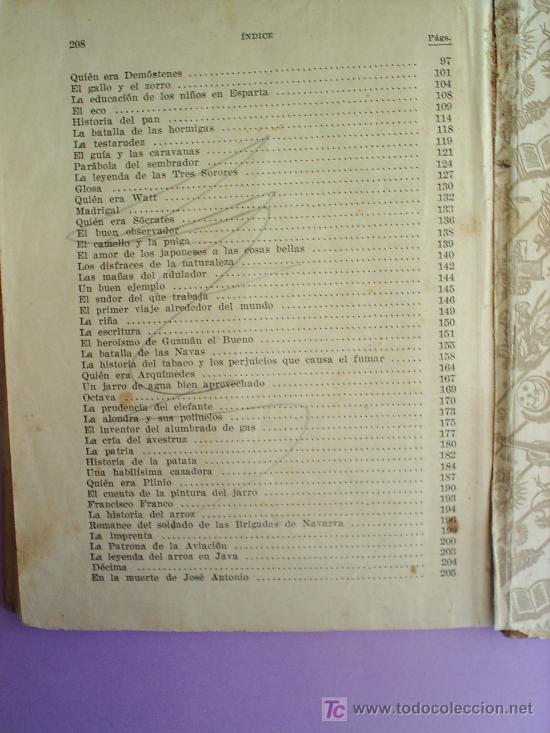 208 ÍNDICE Págs.
Quién era Demóstenes 97
El gallo y el zorro 101
La educación de los niños en Esparta 104
El eco 108
Historia del pan 109
La batalla de las hormigas 114
La testarudez 118
El guía y las caravanas 119
Parábola del sembrador 121
La leyenda de las Tres Sorores 124
Glosa 127
Quién era Watt 130
Madrigal 132
Quién era Sócrates 133
El buen observador 136
El camello y la pulga 138
El amor de los japoneses a las cosas bellas 139
Los disfraces de la naturaleza 140
Las mañas del adulador 142
Un buen ejemplo 144
El sudor del que trabaja 145
El primer viaje alrededor del mundo 146
La riña 149
La escritura 150
El heroísmo de Guzmán el Bueno 151
La batalla de las Navas 155
La historia del tabaco y los perjuicios que causa el fumar 158
Quién era Arquímedes 164
Un jarro de agua bien aprovechado 167
Octava 169
La prudencia del elefante 170
La alondra y sus polluelos 173
El inventor del alumbrado de gas 175
La cría del avestruz 177
La patria 180
Historia de la patata 182
Una habilísima cazadora 184
Quién era Plinio 187
El cuento de la pintura del jarro 190
Francisco Franco 193
La historia del arroz 194
Romance del soldado de las Brigadas de Navarra 196
La imprenta 199
La Patrona de la Aviación 200
La leyenda del arroz en Java 203
Décima 204
En la muerte de José Antonio 205
TC todocoleccion
www.todocoleccion.net